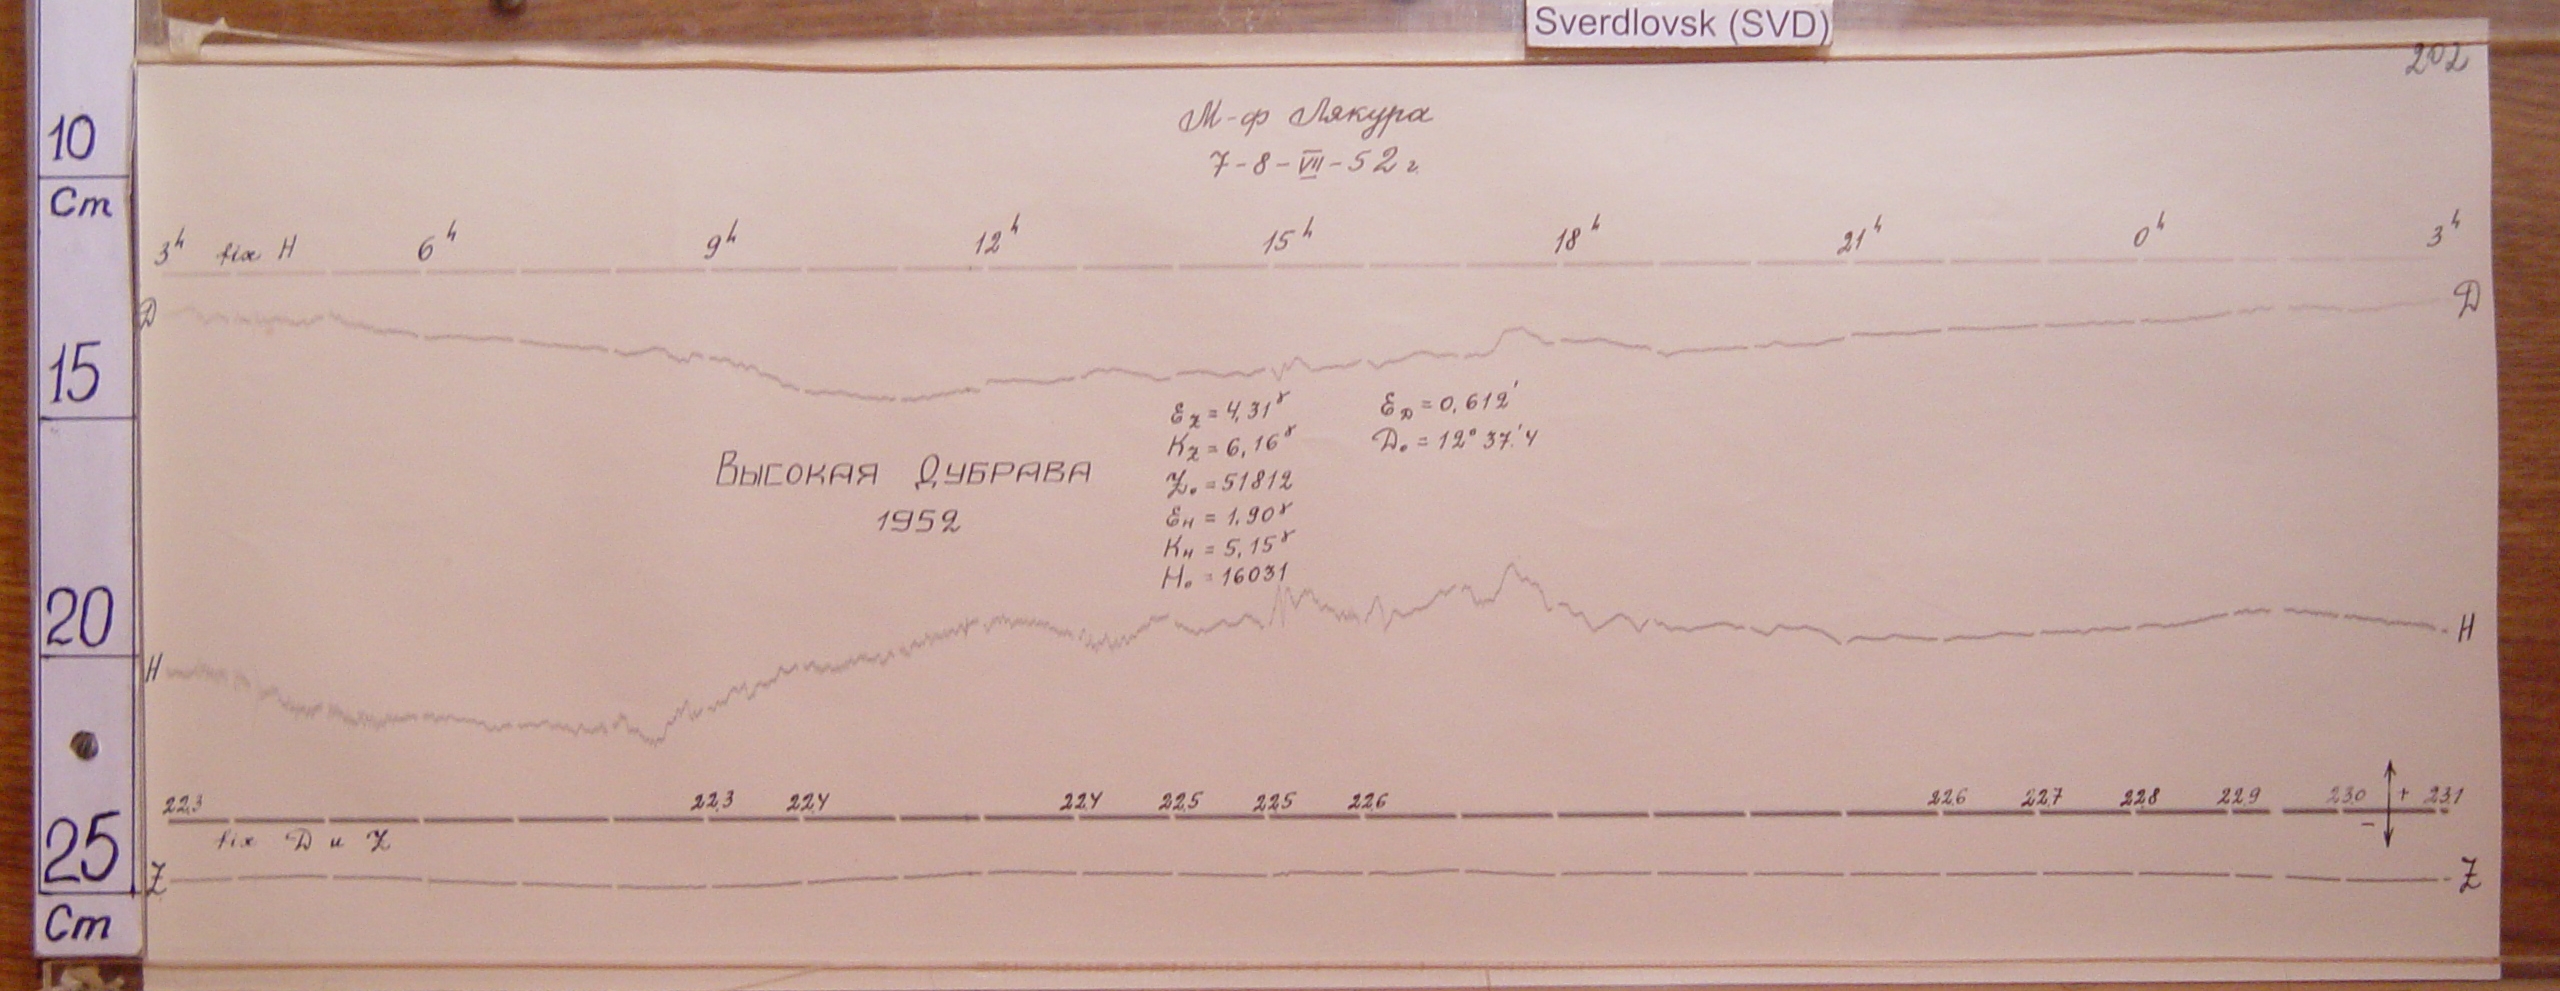 Sverdlovsk (SVD)
202
10
Cm
15
20
25
Cm
М-ф Лякура
7-8-VII-52 г.
3h fix H 6h 9h 12h 15h 18h 21h 0h 3h
Д Д
Ez = 4,31γ ED = 0,612'
Kz = 6,16γ D₀ = 12° 37.'4
Z₀ = 51812
EH = 1.90γ
KH = 5,15γ
H₀ = 16031
Высокая Дубрава
1952
H H
22.3 22.3 22.4 22.4 22.5 22.5 22.6 22.6 22.7 22.8 22.9 23.0 + 23.1
−
fix D и Z
Z Z